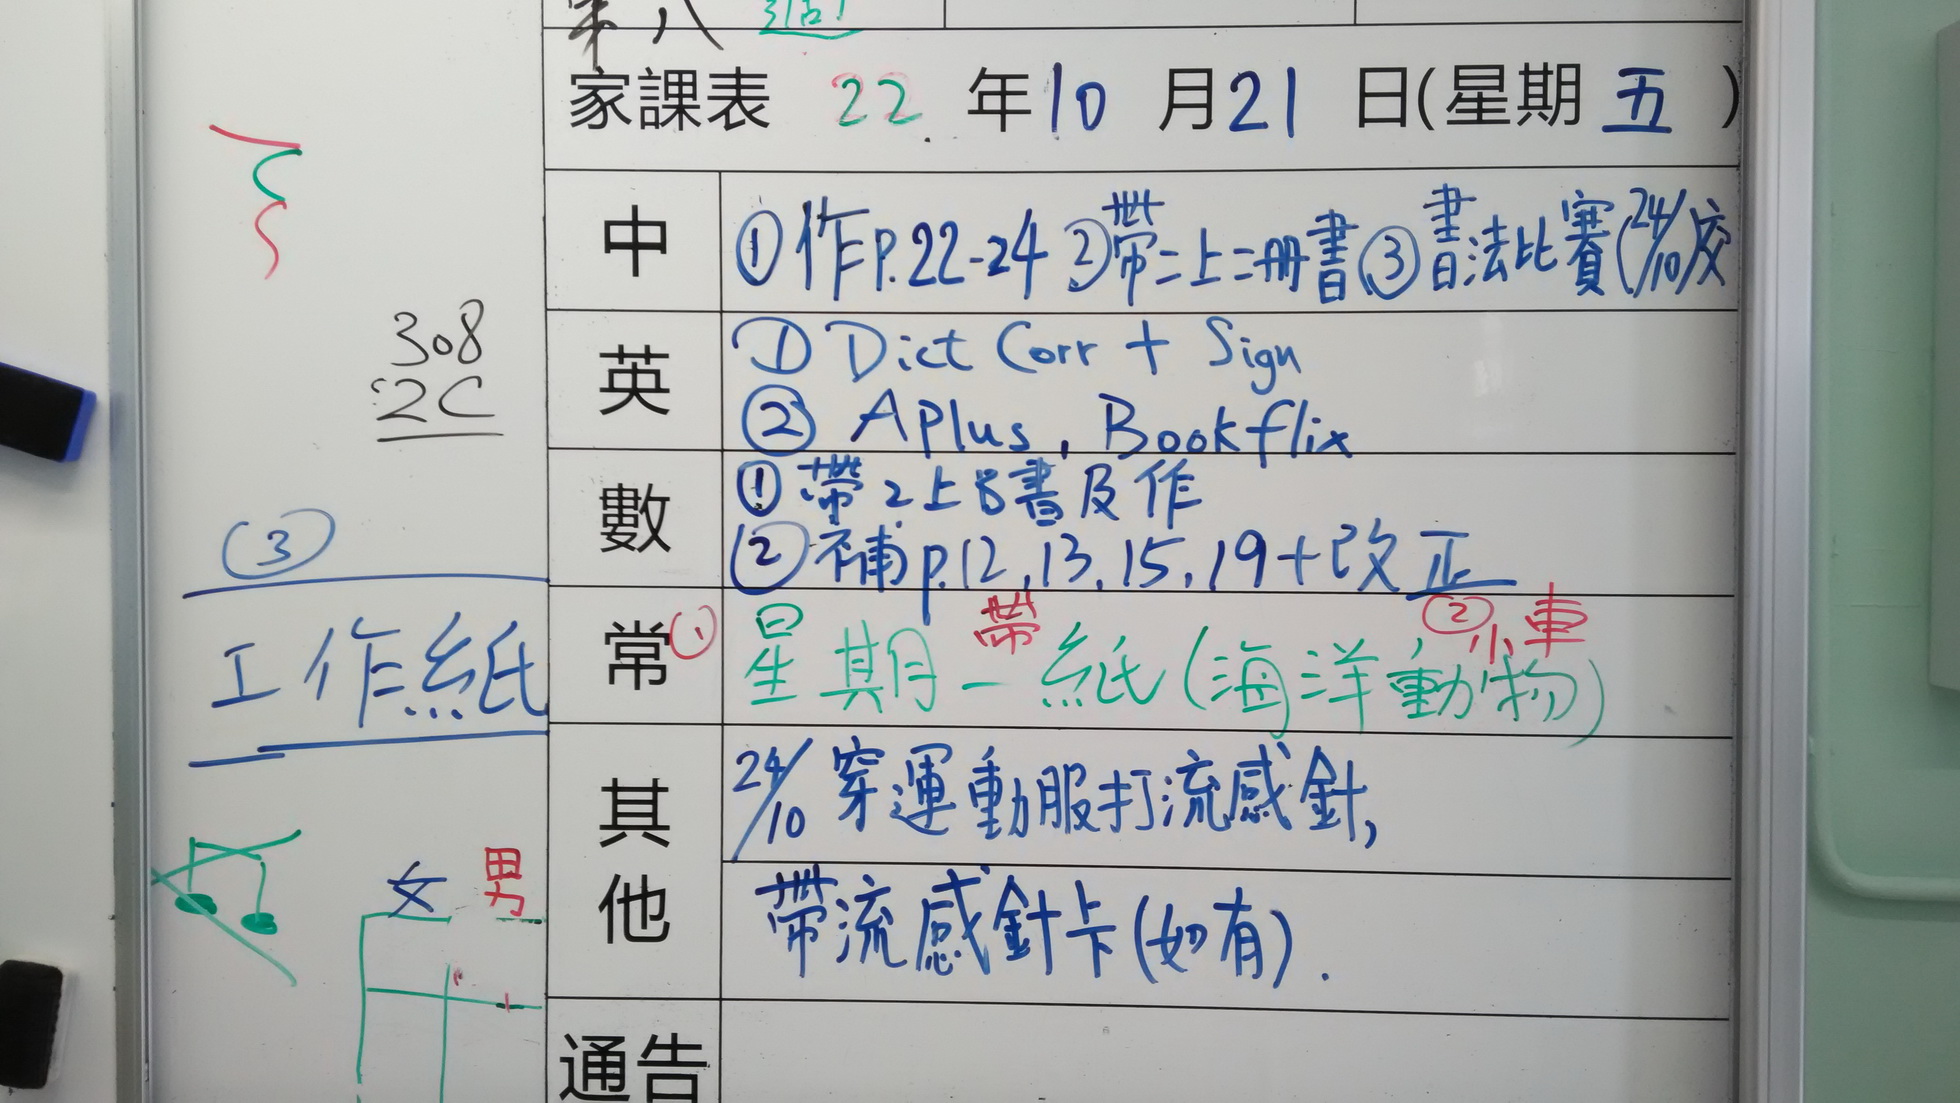 第八
家課表 22 年10 月21 日(星期 五 )
中 ①作P.22-24 ②帶二上二冊書③書法比賽(24/10)交
英 ① Dict Corr + Sign
② APlus, Bookflix
數 ①帶2上B書及作
②補p.12,13,15,19+改正
常① 星期一帶紙(海洋動物) ②小車
其他 24/10 穿運動服打流感針,
帶流感針卡(如有).
通告
308
2C
③
工作紙
女 男